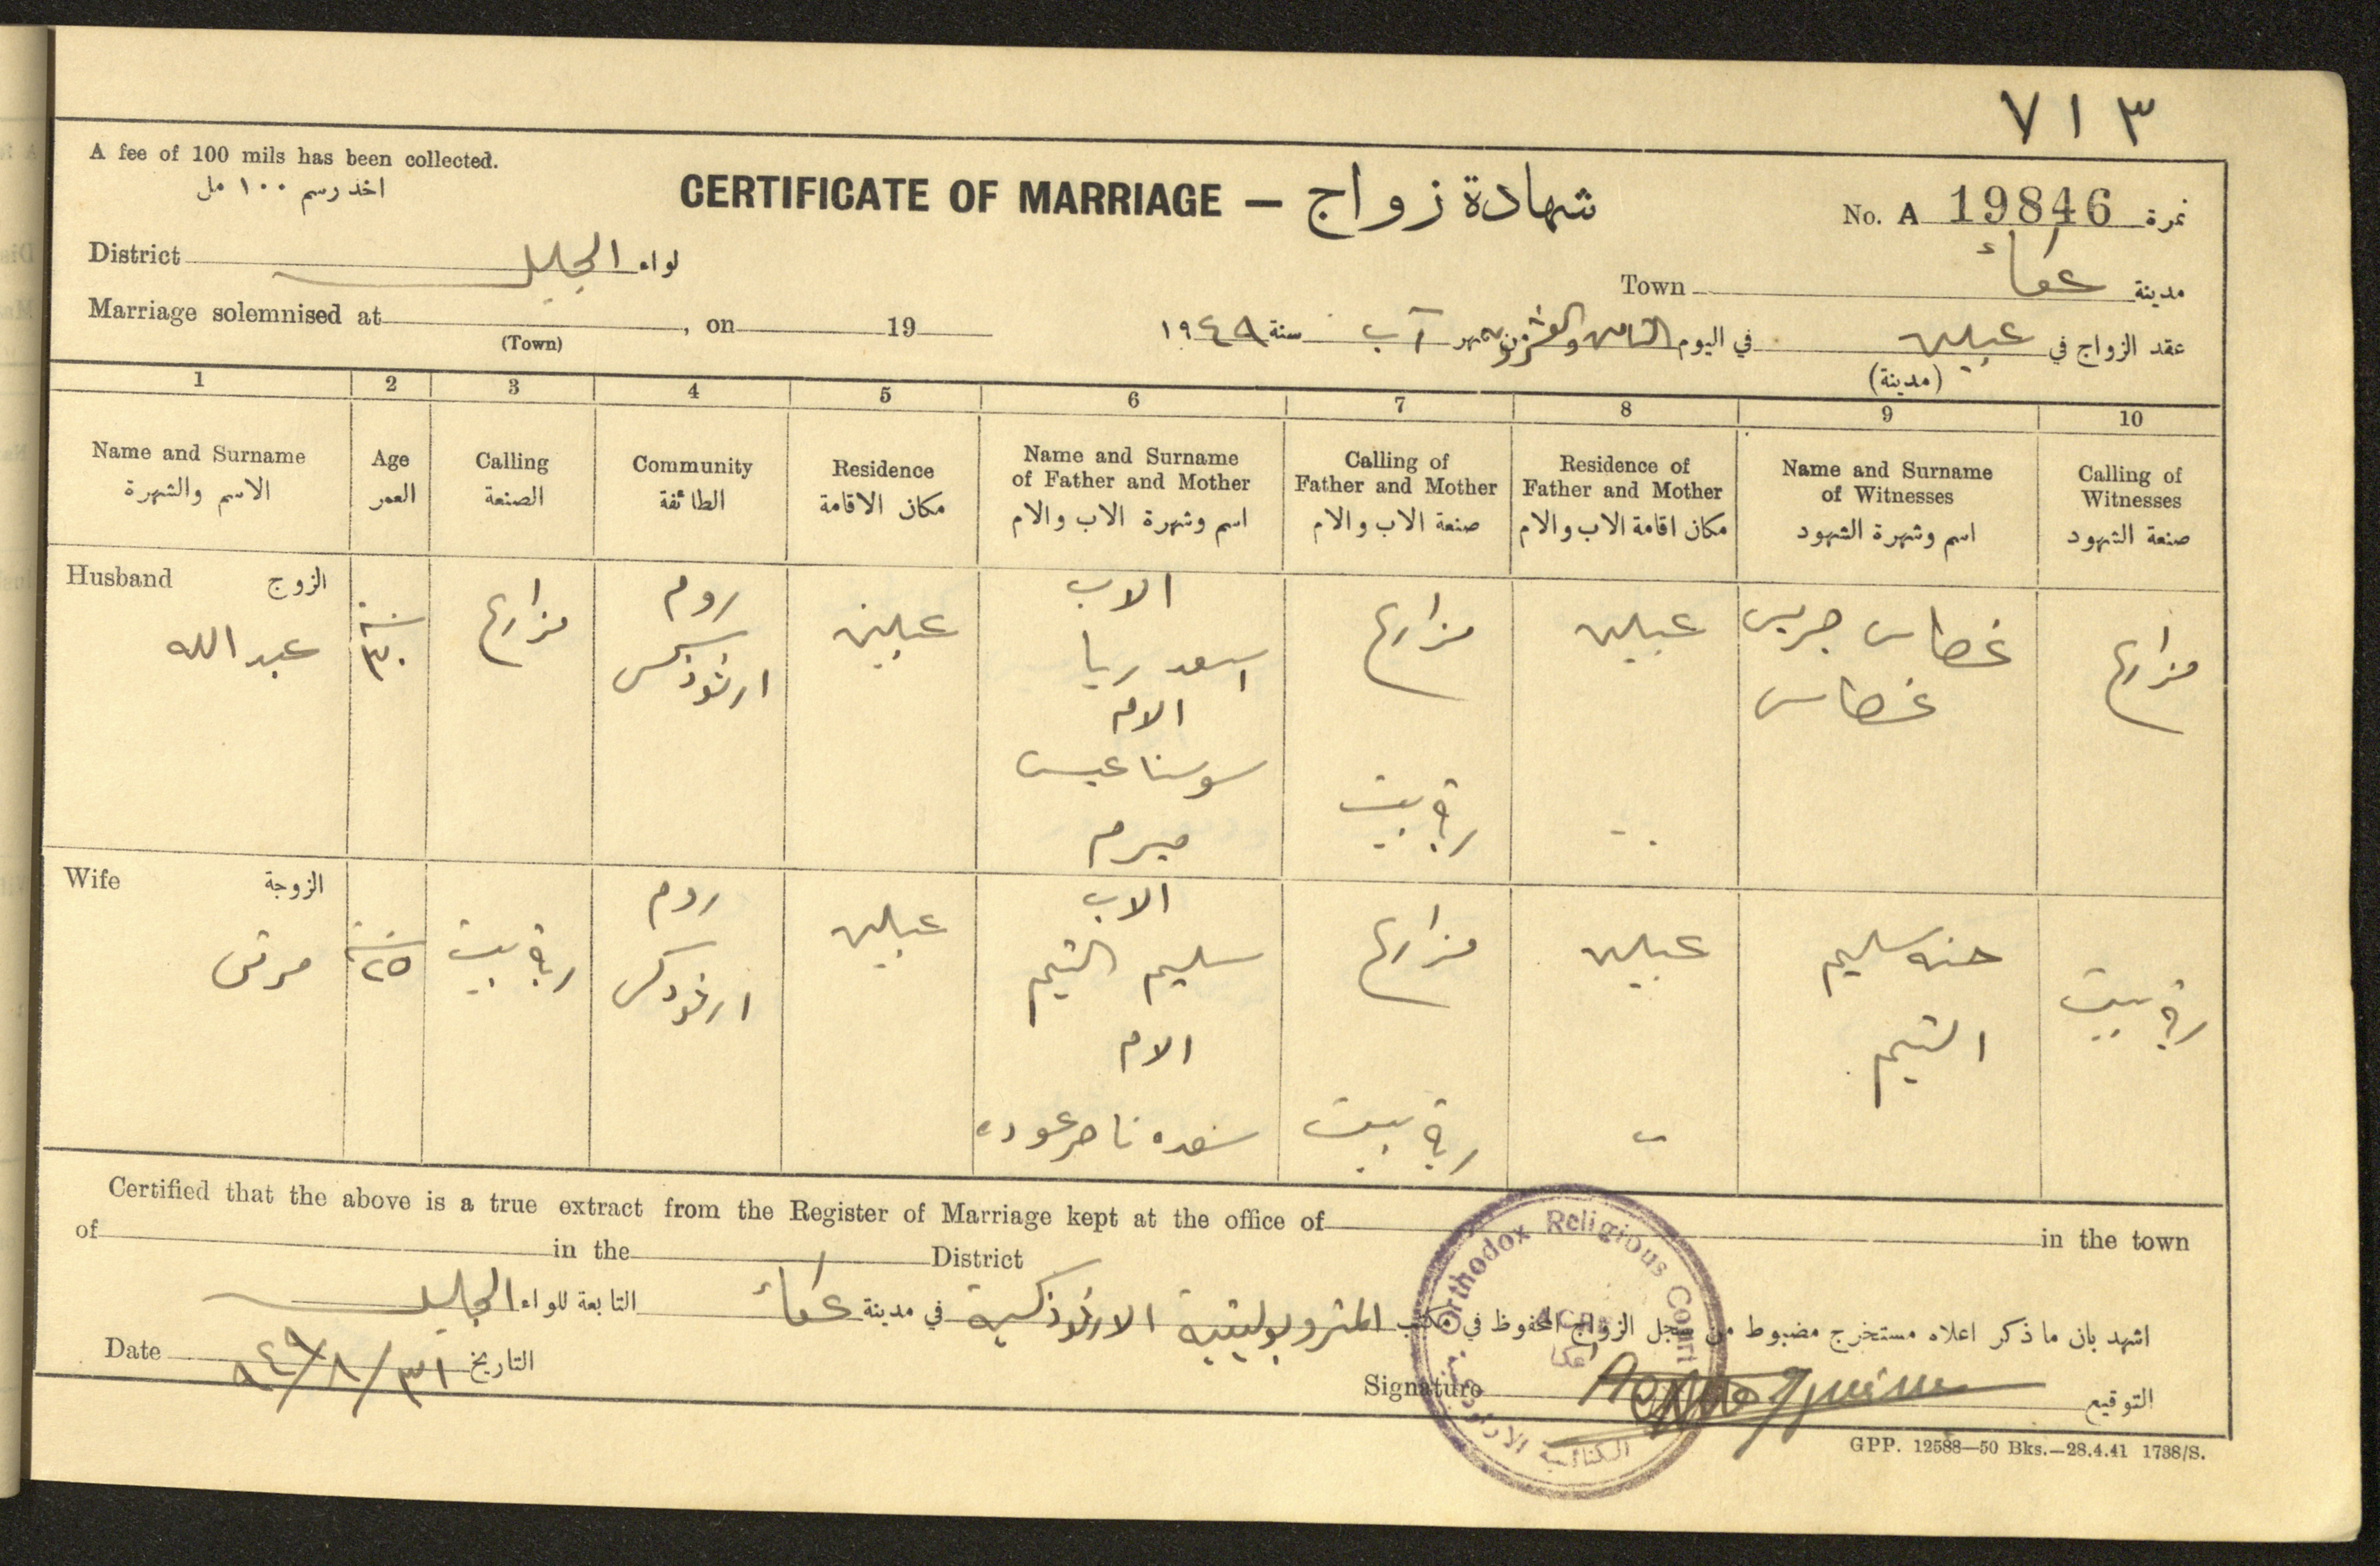 ٧١٣
A fee of 100 mils has been collected.
اخذ رسم ١٠٠ مل
CERTIFICATE OF MARRIAGE — شهادة زواج
No. A 19846 نمرة
District لواء الجليل
Town مدينة عكاء
Marriage solemnised at , on 19
(Town)
عقد الزواج في عبلين في اليوم الثامن والعشرين شهر آب سنة ١٩٤٩
(مدينة)
1 2 3 4 5 6 7 8 9 10
Name and Surname
الاسم والشهرة
Age
العمر
Calling
الصنعة
Community
الطائفة
Residence
مكان الاقامة
Name and Surname
of Father and Mother
اسم وشهرة الاب والام
Calling of
Father and Mother
صنعة الاب والام
Residence of
Father and Mother
مكان اقامة الاب والام
Name and Surname
of Witnesses
اسم وشهرة الشهود
Calling of
Witnesses
صنعة الشهود
Husband الزوج
عبدالله
سنة
٣٠
مزارع
روم
ارثوذكس
عبلين
الاب
اسعد ريا
الام
سوسنا عيسى
مريم
مزارع
ربة بيت
عبلين
غطاس جريس
غطاس
مزارع
Wife الزوجة
سنة
٢٥
ربة بيت
روم
ارثوذكس
عبلين
الاب
سليم
الام
ناصر عوده
مزارع
ربة بيت
عبلين
حنه سليم
ربة بيت
Certified that the above is a true extract from the Register of Marriage kept at the office of in the town
of in the District
اشهد بان ما ذكر اعلاه مستخرج مضبوط من سجل الزواج المحفوظ في مكتب المتروبوليتية الارثوذكسية في مدينة عكاء التابعة للواء الجليل
Date التاريخ ٣١/٨/٩٤٩
Signature التوقيع
Orthodox Religious Court
عكا
GPP. 12588—50 Bks.—28.4.41 1738/S.